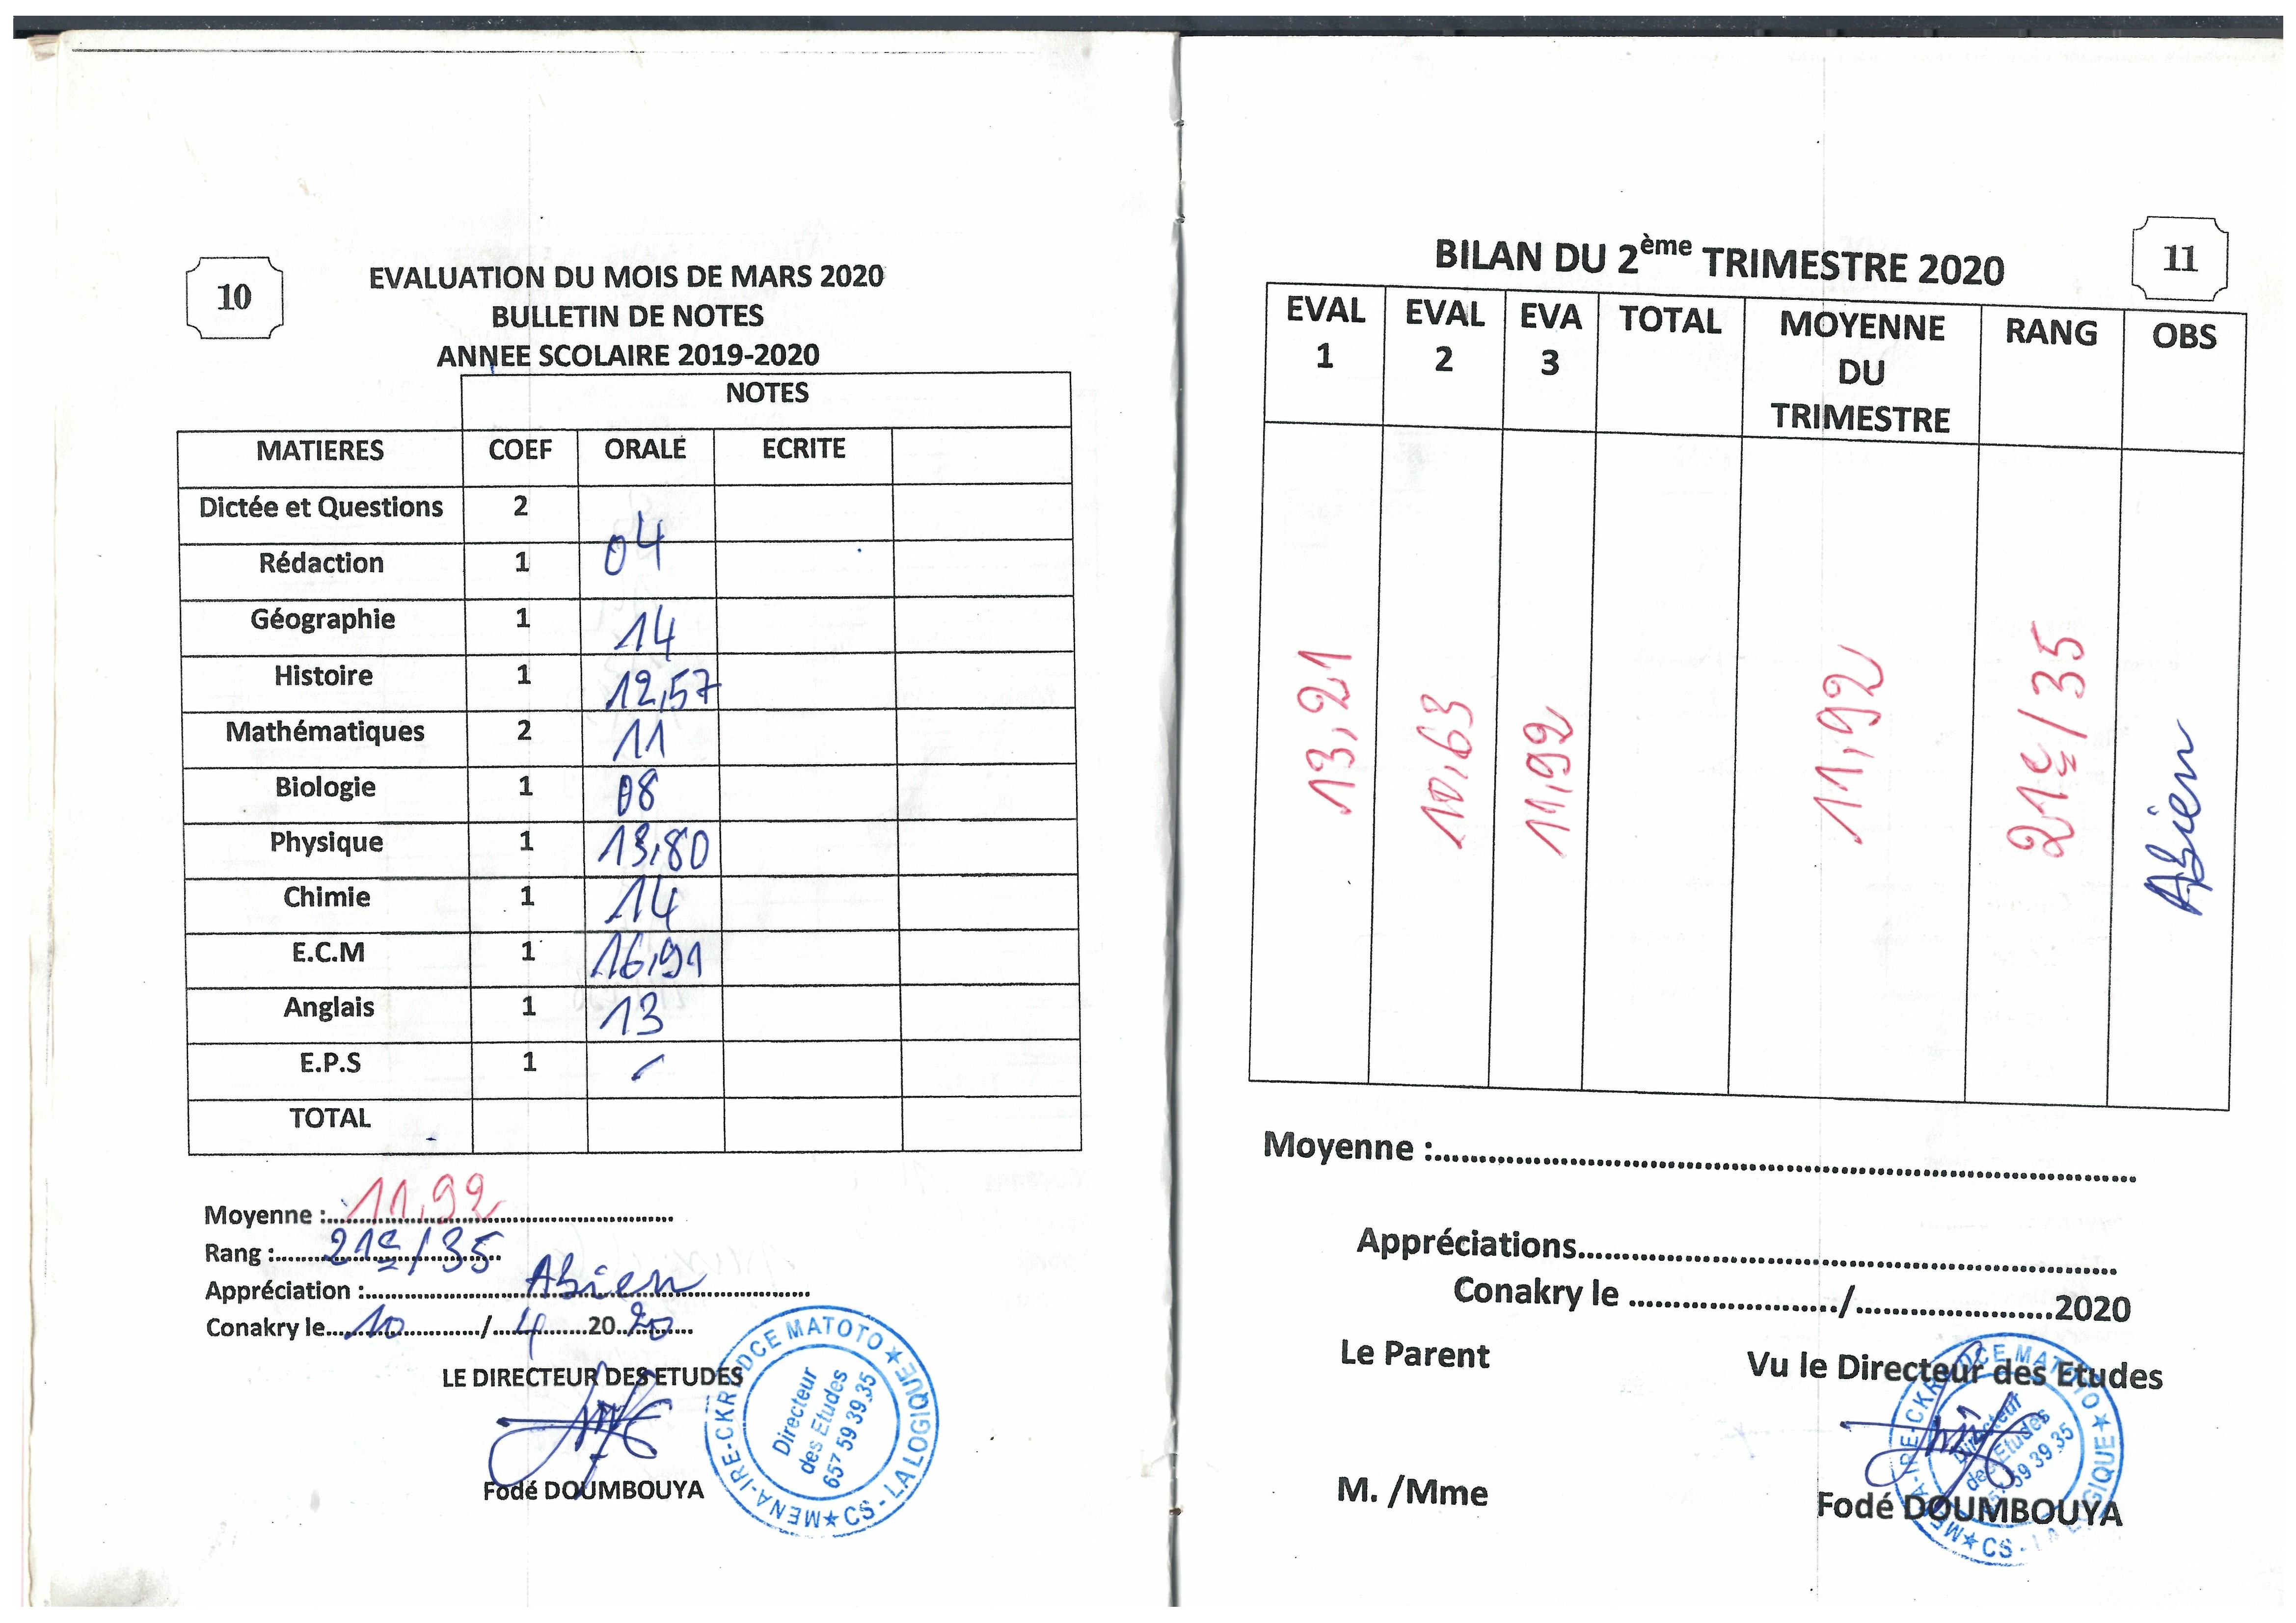 10
EVALUATION DU MOIS DE MARS 2020
BULLETIN DE NOTES
ANNEE SCOLAIRE 2019-2020
NOTES
MATIERES COEF ORALE ECRITE
Dictée et Questions 2
04
Rédaction 1
Géographie 1 14
Histoire 1 12,57
Mathématiques 2 11
Biologie 1 08
Physique 1 13,80
Chimie 1 14
E.C.M 1 16,91
Anglais 1 13
E.P.S 1 -
TOTAL
Moyenne : 11,92
Rang : 21e/35
Appréciation : ABien
Conakry le 10 / 4 2020
LE DIRECTEUR DES ETUDES
Fodé DOUMBOUYA
MENA-IRE-CKRY-DCE MATOTO ★ CS - LA LOGIQUE ★
Directeur
des Etudes
657 59 39 35
11
BILAN DU 2ème TRIMESTRE 2020
EVAL 1 EVAL 2 EVA 3 TOTAL MOYENNE DU TRIMESTRE RANG OBS
13,21 10,63 11,92 11,92 21e/35 ABien
Moyenne :
Appréciations
Conakry le / 2020
Le Parent Vu le Directeur des Etudes
M. /Mme Fodé DOUMBOUYA
DCE MATOTO ★ CS - LA LOGIQUE
Directeur
des Etudes
59 39 35